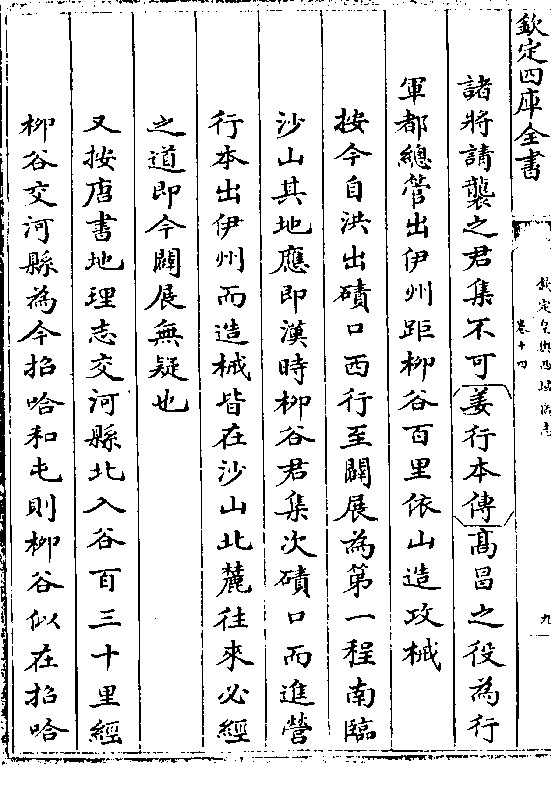 欽定四庫全書
欽定皇輿西域圖志
卷十四
九
諸將請襲之君集不可姜行本傳高昌之役為行
軍都總管出伊州距柳谷百里依山造攻械
按今自洪出磧口西行至闢展為第一程南臨
沙山其地應即漢時柳谷君集次磧口而進營
行本出伊州而造械皆在沙山北麓往來必經
之道即今闢展無疑也
又按唐書地理志交河縣北入谷百三十里經
柳谷交河縣為今招哈和屯則柳谷似在招哈